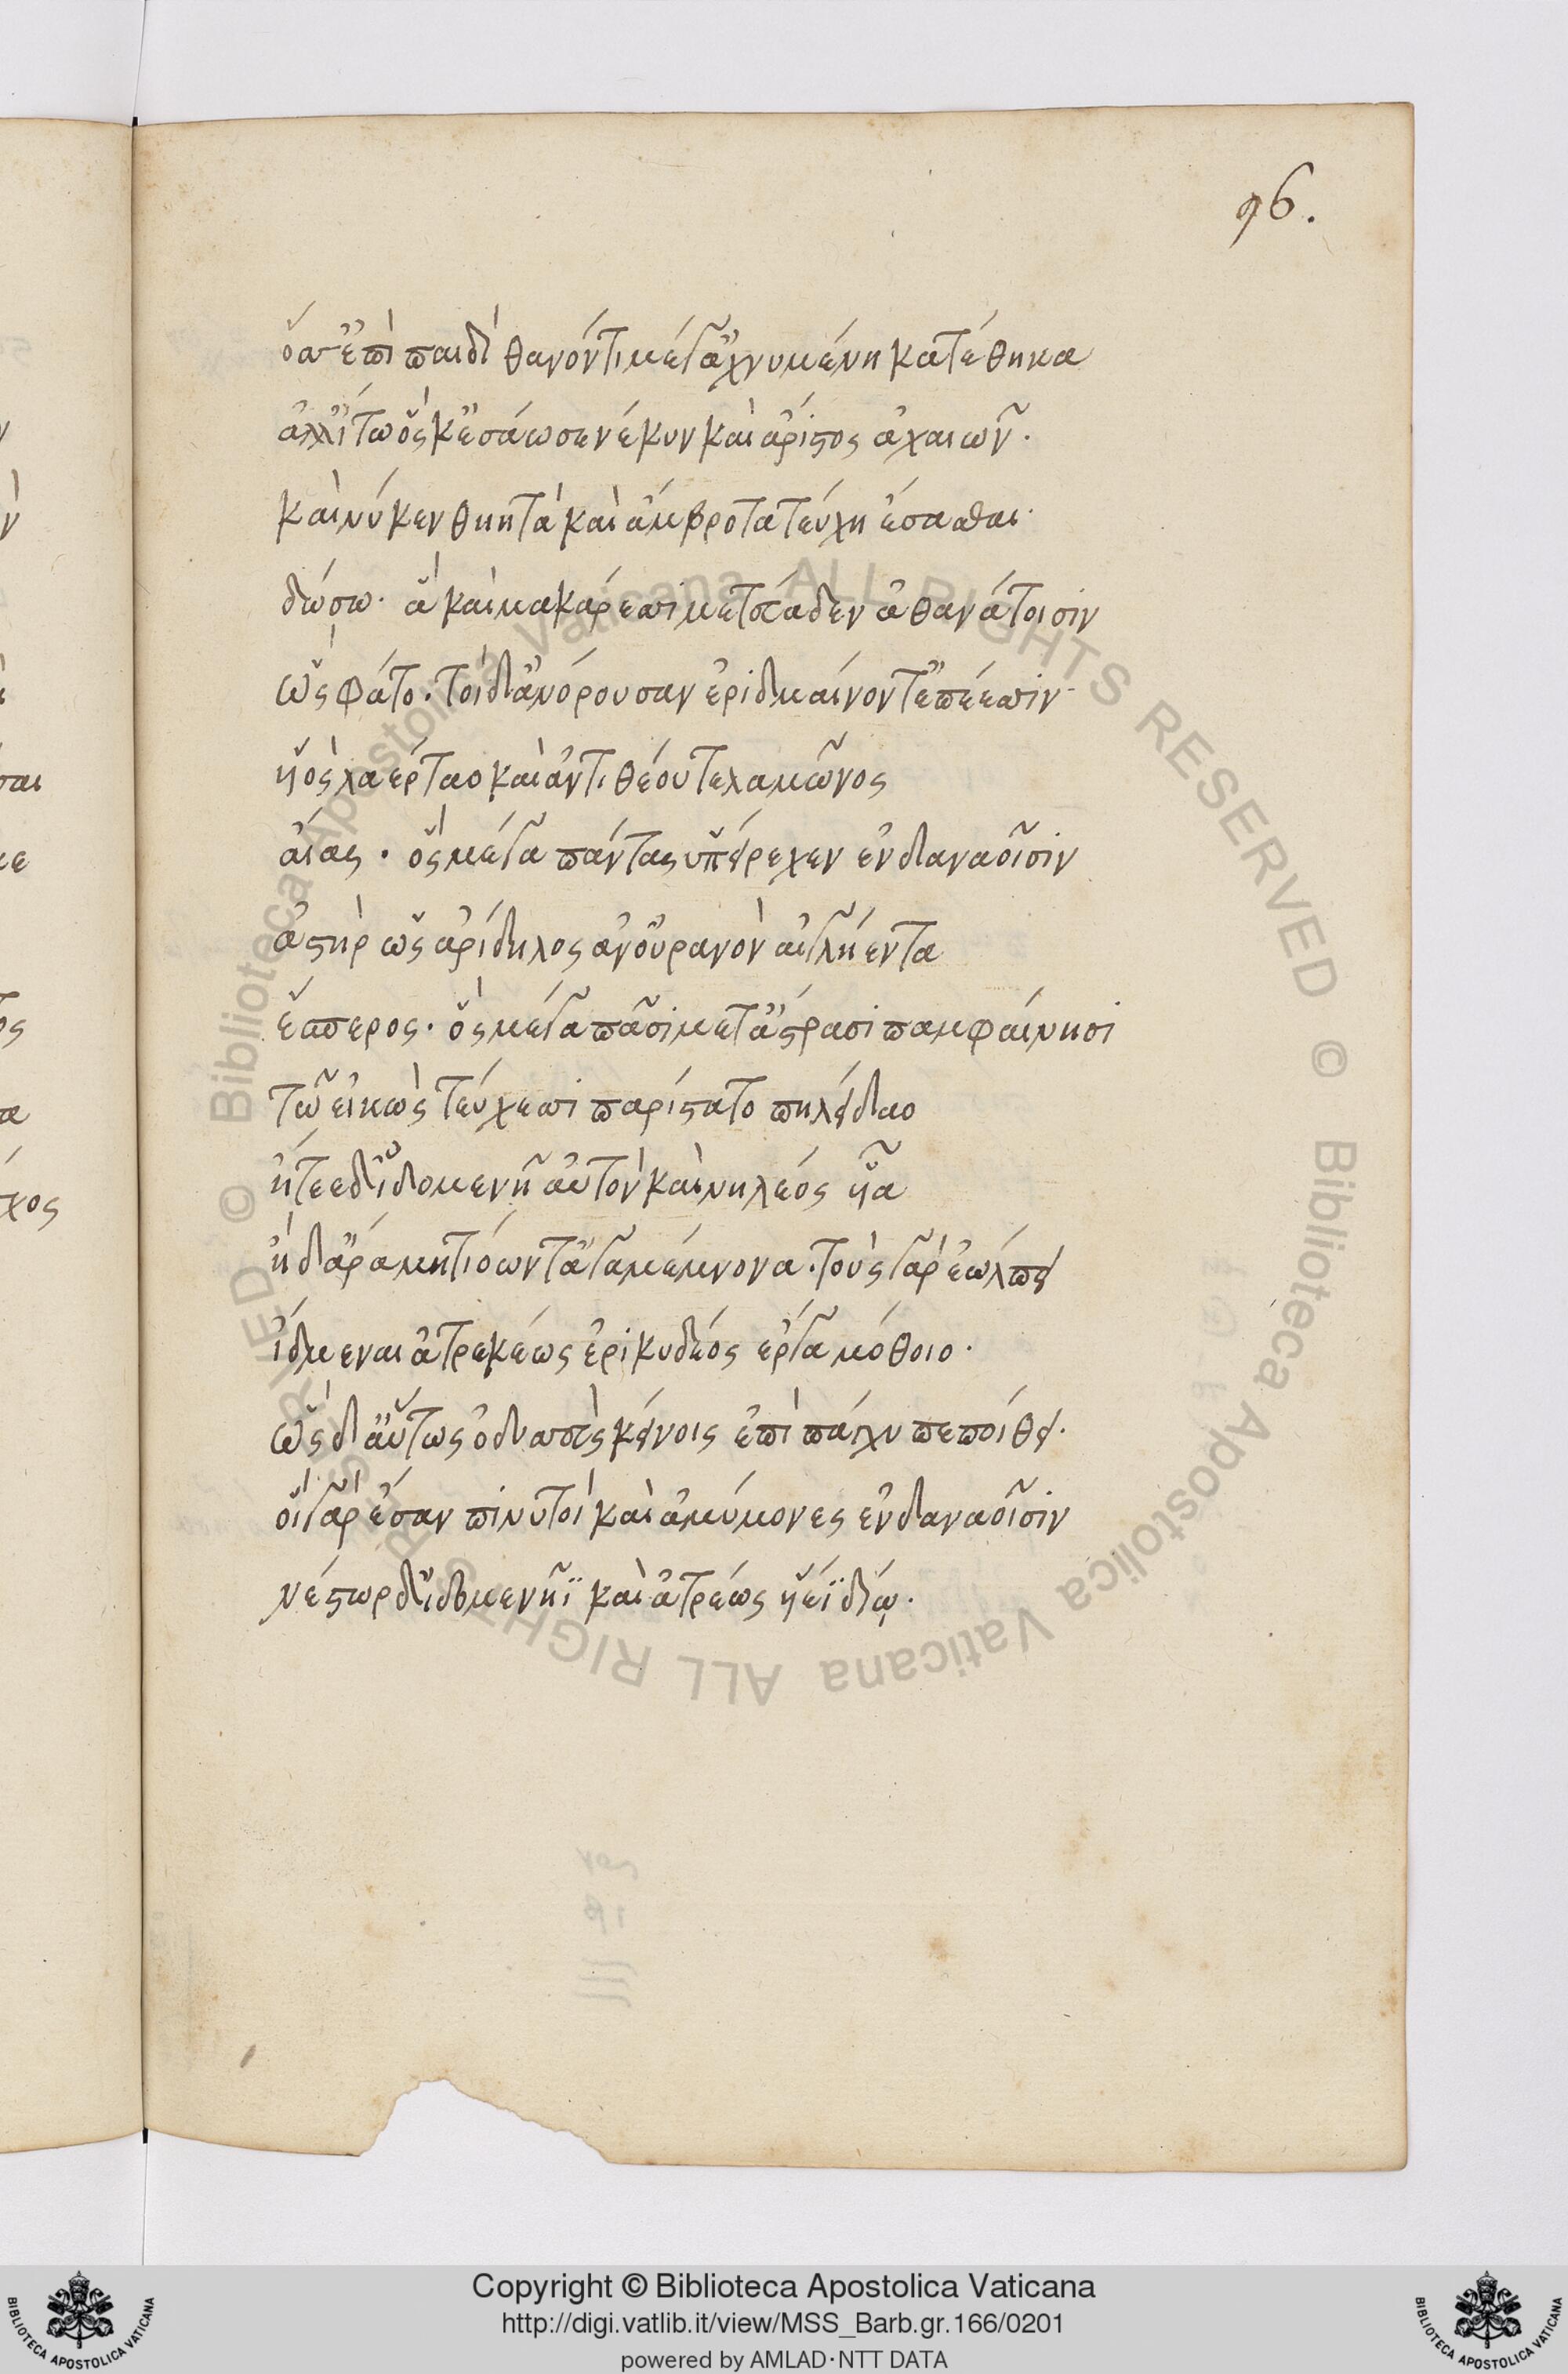 96.
ὅσ' ἐπὶ παιδὶ θανόντι μέγ' ἀχνυμένη κατέθηκα
ἀλλ' ἴτω ὅς κ' ἐσάωσε νέκυν καὶ ἄριστος ἀχαιῶν.
καὶ νύ κεν θηητὰ καὶ ἄμβροτα τεύχη ἕσασθαι·
δώσω. ἃ καὶ μακάρεσσι μέγ' εὔαδεν ἀθανάτοισιν
ὣς φάτο. τοὶ δ' ἀνόρουσαν ἐριδμαίνοντ' ἐπέεσσιν·
υἱὸς λαέρταο καὶ ἀντιθέου τελαμῶνος
αἴας. ὃς μέγα πάντας ὑπείρεχεν ἐν δαναοῖσιν
ἀστὴρ ὣς ἀρίδηλος ἀν' οὐρανὸν αἰγλήεντα
ἕσπερος. ὃς μέγα πᾶσι μετ' ἄστρασι παμφαίνησι
τῷ εἰκὼς τεύχεσσι παρίστατο πηλείδαο
ᾔτεε δ' ἰδομενῆα κλυτὸν καὶ νηλέος υἷα
ἠδ' ἄρα μητιόωντ' ἀγαμέμνονα. τοὺς γὰρ ἐώλπει
ἴδμεναι ἀτρεκέως ἐρικυδέος ἔργα μόθοιο.
ὣς δ' αὔτως ὀδυσσεὺς κείνοις ἐπὶ πάγχυ πεποίθει.
οἳ γὰρ ἔσαν πινυτοὶ καὶ ἀμύμονες ἐν δαναοῖσιν
νέστωρ δ' ἰδομενῆϊ καὶ ἀτρέως υἱέϊ δίῳ.
Copyright © Biblioteca Apostolica Vaticana
http://digi.vatlib.it/view/MSS_Barb.gr.166/0201
powered by AMLAD·NTT DATA
BIBLIOTECA APOSTOLICA VATICANA
BIBLIOTECA APOSTOLICA VATICANA
© Biblioteca Apostolica Vaticana ALL RIGHTS RESERVED © Biblioteca Apostolica Vaticana ALL RIGHTS RESERVED